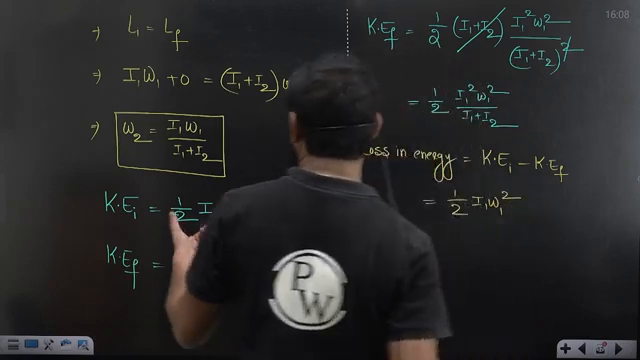 ⇒ L₁ = L_f
⇒ I₁W₁ + 0 = (I₁+I₂)
⇒ W₂ = I₁W₁ / (I₁+I₂)
K·E_i = 1/2 I
K·E_f =
K·E_f = 1/2 (I₁+I₂) I₁²W₁² / (I₁+I₂)²
= 1/2 I₁²W₁² / (I₁+I₂)
Loss in energy = K·E_i − K·E_f
= 1/2 I₁W₁²
PW
16:08